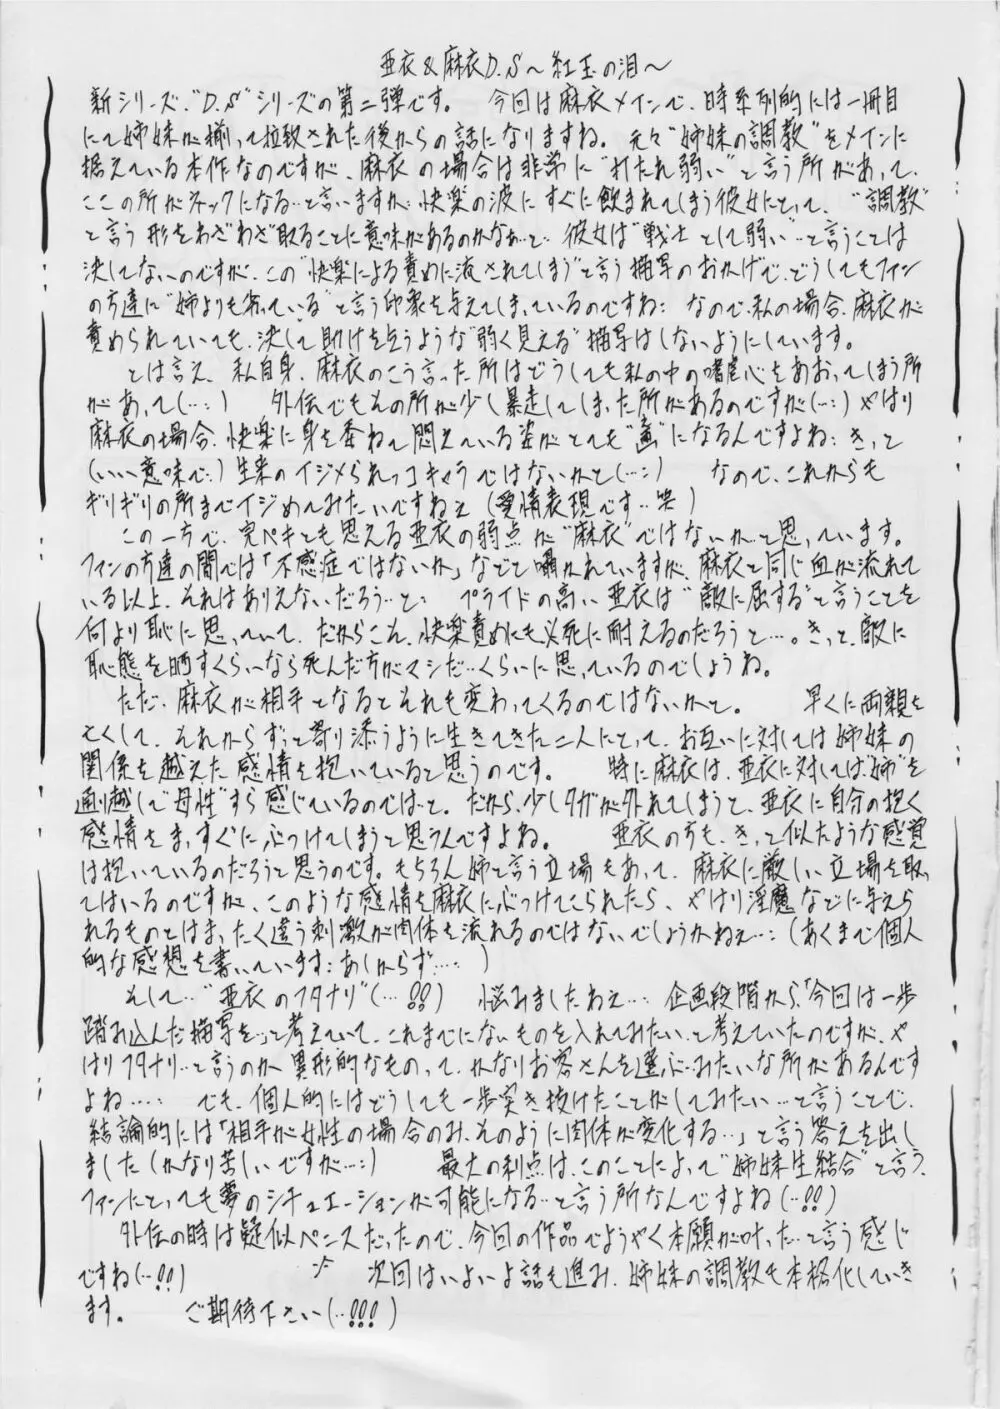 亜衣&麻衣D.S～紅玉の泪～
新シリーズ、"D.S"シリーズの第二弾です。 今回は麻衣メインで、時系列的には一冊目
にて姉妹が揃って拉致された後からの話になりますね。元々"姉妹の調教"をメインに
据えている本作なのですが、麻衣の場合は非常に"打たれ弱い"と言う所があって、
ここの所がネックになる…と言いますか、快楽の波にすぐに飲まれてしまう彼女にとって、"調教"
と言う形をわざわざ取ることに意味があるのかなぁ…と、彼女は"戦士として弱い"…と言うことは
決してないのですが、この"快楽による責めに流されてしまう"と言う描写のおかげで、どうしてもファン
の方達に"姉よりも劣っている"と言う印象を与えてしまっているのですね： なので、私の場合、麻衣が
責められていても、決して助けを乞うような"弱く見える"描写はしないようにしています。
とは言え、私自身、麻衣のこう言った所はどうしても私の中の嗜虐心をあおってしまう所
があって(…：) 外伝でもその所が少し暴走してしまった所があるのですが(…：)やはり
麻衣の場合、快楽に身を委ねて悶えている姿がとても"画"になるんですよね：きっと
(いい意味で…)生来のイジメられっコキャラではないかと(…：) なので、これからも
ギリギリの所までイジめてみたいですねぇ(愛情表現です…笑)
この一方で、完ペキとも思える亜衣の弱点が"麻衣"ではないかと思っています。
ファンの方達の間では「不感症ではないか」などと囁かれていますが、麻衣と同じ血が流れて
いる以上、それはありえないだろう…と： プライドの高い亜衣は"敵に屈する"と言うことを
何より恥に思っていて、だからこそ、快楽責めにも必死に耐えるのだろうと…。きっと、敵に
恥態を晒すくらいなら死んだ方がマシだ…くらいに思っているのでしょうね。
ただ、麻衣が相手となるとそれも変わってくるのではないかと。 早くに両親を
亡くして、それからずっと寄り添うように生きてきた二人にとって、お互いに対しては姉妹の
関係を越えた感情を抱いていると思うのです。 特に麻衣は、亜衣に対しては"姉"を
通り越して"母性"すら感じているのではと。だから、少しタガが外れてしまうと、亜衣に自分の抱く
感情をまっすぐにぶつけてしまうと思うんですよね。 亜衣の方も、きっと似たような感覚
は抱いているのだろうと思うのです。もちろん姉と言う立場もあって、麻衣に厳しい立場を取っ
てはいるのですが、このような感情を麻衣にぶつけてこられたら、やはり淫魔などに与えら
れるものとはまったく違う刺激が肉体を流れるのではないでしょうかねぇ…：(あくまで個人
的な感想を書いています：あしからず…)
そして…"亜衣のフタナリ"(…!!) 悩みましたねぇ…：企画段階から、「今回は一歩
踏み込んだ描写を…」と考えていて、これまでにないものを入れてみたい、と考えていたのですが、や
はりフタナリ…と言うのか異形的なものって、かなりお客さんを選ぶ…みたいな所があるんです
よね…： でも、個人的にはどうしても一歩突き抜けたことがしてみたい…と言うことで、
結論的には「相手が女性の場合のみ、そのように肉体が変化する…」と言う答えを出し
ました(かなり苦しいですが…：) 最大の利点は、このことによって"姉妹生結合"と言う、
ファンにとっても夢のシチュエーションが可能になる…と言う所なんですよね(…!!)
外伝の時は疑似ペニスだったので、今回の作品でようやく本願が叶った…と言う感じ
ですね(…!!) 次回はいよいよ話も進み、姉妹の調教も本格化していき
ます。 ご期待下さい(…!!!)